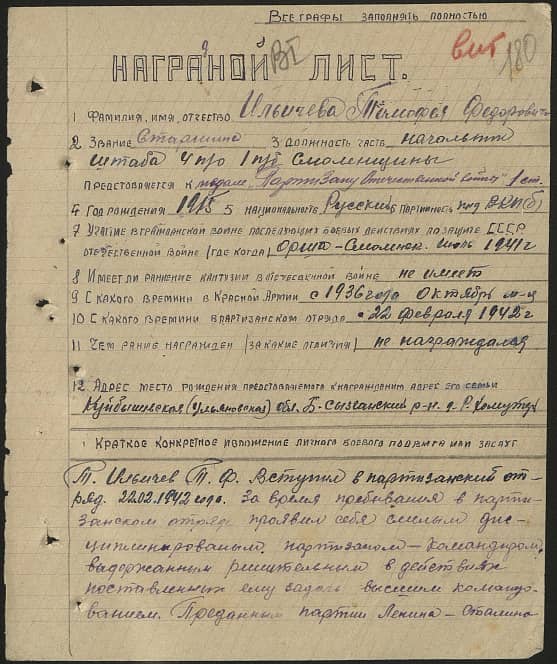 Все графы заполнять полностью
вит 180
НАГРАДНОЙ ЛИСТ. ВI
1 Фамилия, имя, отчество Ильичева Тимофея Федорович
2 Звание Старшина 3 Должность часть начальник
штаба 4 п/о 1 Смоленщины
Предстовляется к медале "Партизану Отечественной войны" 1 ст.
4 Год рождения 1915 5 национальность Русский 6 Партийность ВКП(б)
7 Участие в гражданской войне последующих боевых действиях по защите СССР
отечественной войне (где когда) Орша-Смоленск. июль 1941 г
8 Имеет ли ранение кантузии в отечественной войне не имеет
9 С какого времини в Красной Армии с 1936 года октябрь м-ц
10 С какого времини в партизанском отряде с 22 февраля 1942 г
11 Чем ранше награжден (за какие отличия) не награждался
12 Адрес место рождения предстовляемого к награждению адрес его семьи
Куйбышевская (Ульяновская) обл. Б-Сызганский р-н. д. Р. Хомутерь
1 Краткое конкретное изложение личного боевого подвига или заслуг
Т. Ильичев Т. Ф. Вступил в партизанский от-
ряд. 22.02.1942 года. За время пребывания в парти-
занском отряде проявил себя смелым дис-
циплинированым, партизаном-командиром,
выдержанным решительным в действиях
поставленных ему задачь высшим командо-
ванием. Преданным партии Ленина-Сталина